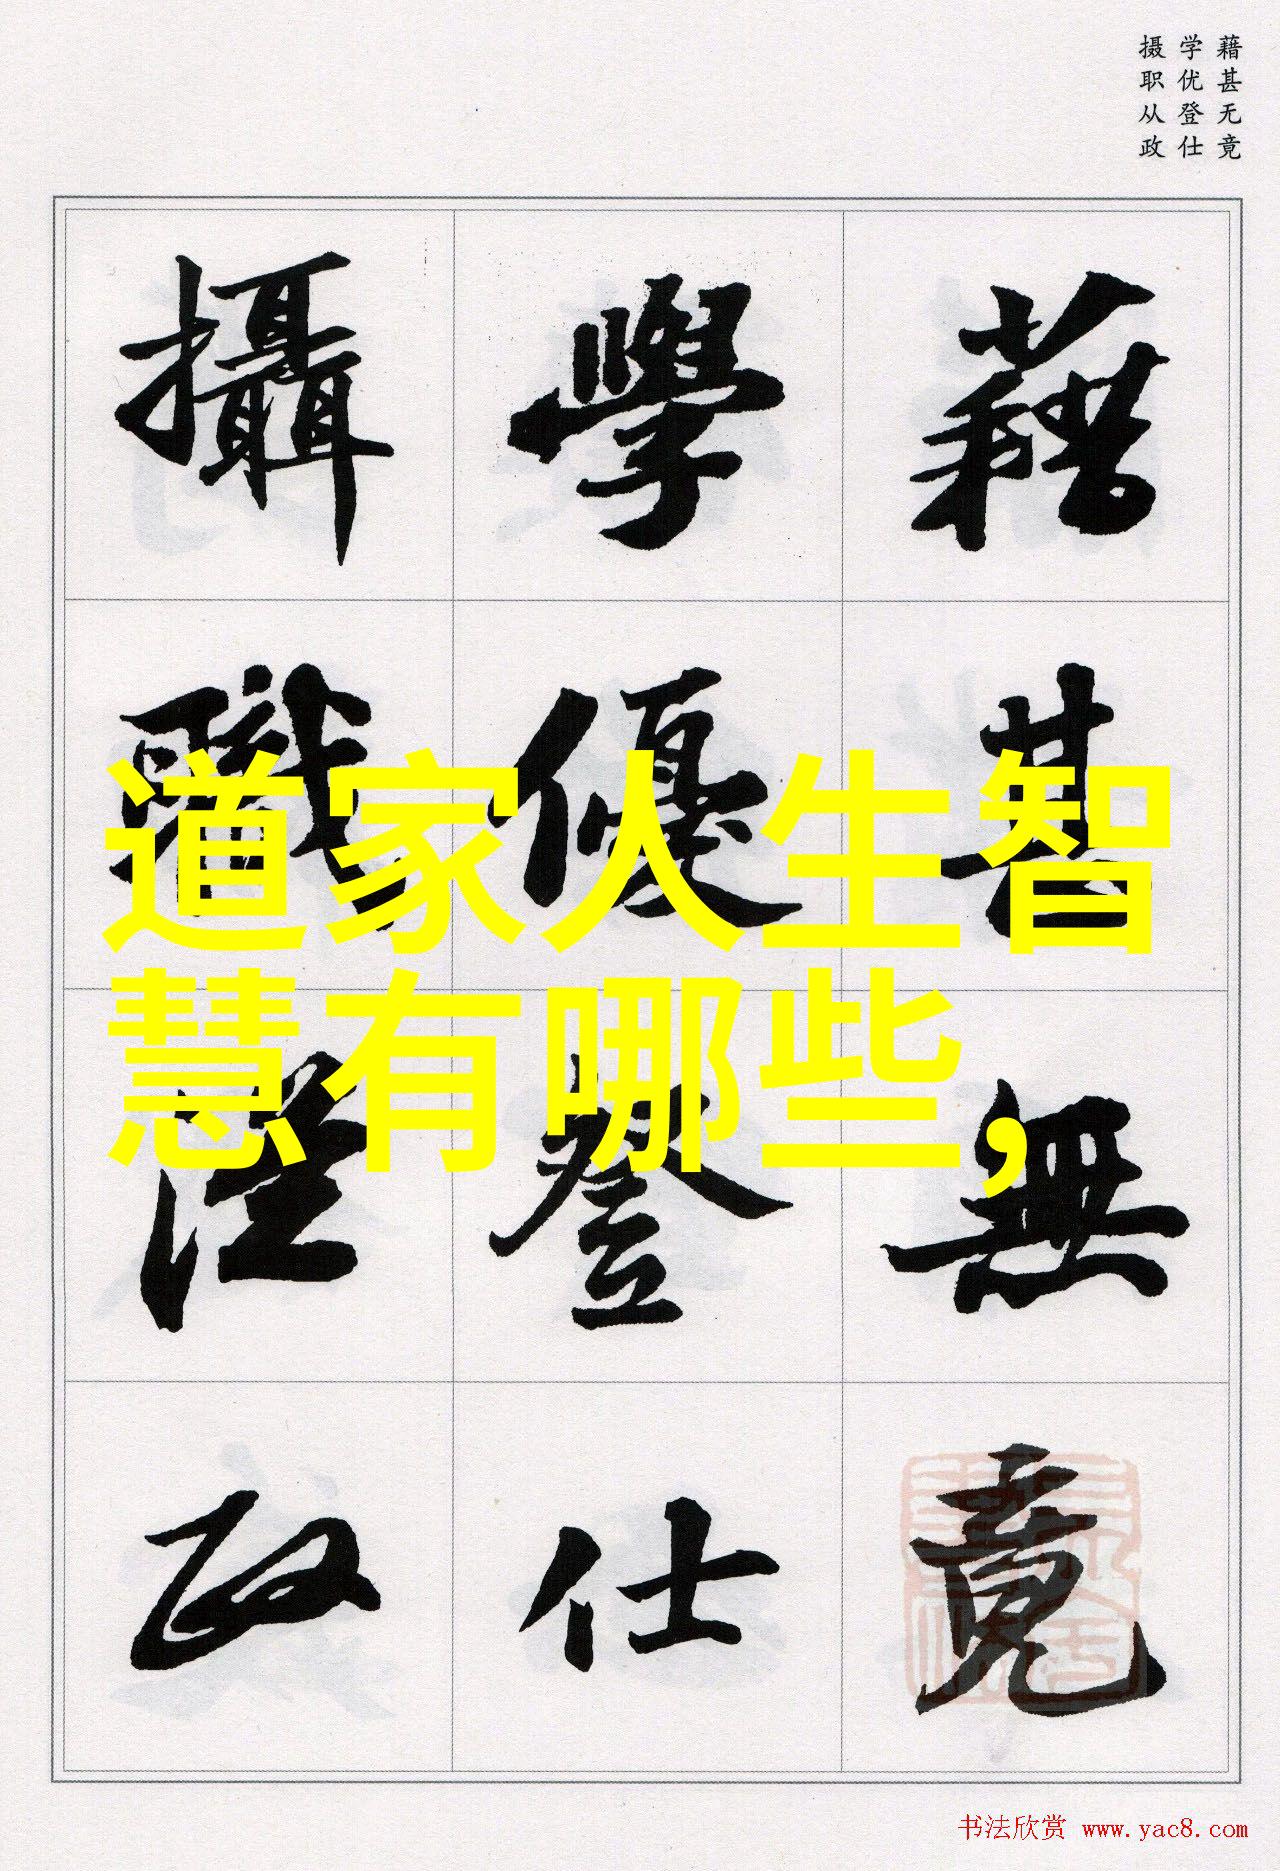 藉甚无竟
学优登仕
摄职从政
藉甚無竟
學優登仕
攝職從政
道家人生智
慧有哪些,
书法欣赏 www.yac8.com